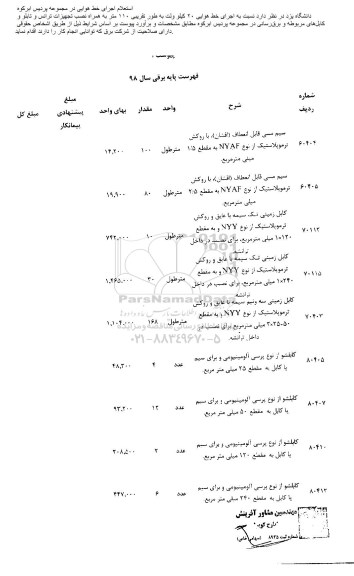 استعلام اجرای خط هوایی در مجموعه پردیس ابرکوه
دانشگاه یزد در نظر دارد نسبت به اجرای خط هوایی ۲۰ کیلو ولت به طور تقریبی ۱۱۰ متر به همراه نصب تجهیزات ترانس و تابلو و
کابل‌های مربوطه و برق‌رسانی در مجموعه پردیس ابرکوه مطابق مشخصات و برآورد پیوست بر اساس شرایط ذیل از طریق اشخاص حقوقی
دارای صلاحیت از شرکت برق که توانایی انجام کار را دارند اقدام نماید.
پیوست
فهرست پایه برقی سال ۹۸
شماره ردیف شرح واحد مقدار بهای واحد مبلغ پیشنهادی پیمانکار مبلغ کل
۶۰۴۰۴ سیم مسی قابل انعطاف (افشان)، با روکش متر طول ۱۰۰ ۱۴,۲۰۰
ترموپلاستیک از نوع NYAF به مقطع ۱/۵
میلی مترمربع.
۶۰۴۰۵ سیم مسی قابل انعطاف (افشان)، با روکش مترطول ۸۰ ۱۹,۹۰۰
ترموپلاستیک از نوع NYAF به مقطع ۲/۵
میلی مترمربع.
۷۰۱۱۲ کابل زمینی تک سیمه با عایق و روکش مترطول ۱۰ ۷۴۲,۰۰۰
ترموپلاستیک از نوع NYY و به مقطع
۱×۱۲۰ میلی مترمربع، برای نصب در داخل
ترانشه.
۷۰۱۱۵ کابل زمینی تک سیمه با عایق و روکش مترطول ۳۰ ۱,۴۶۵,۰۰۰
ترموپلاستیک از نوع NYY و به مقطع
۱×۲۴۰ میلی مترمربع، برای نصب در داخل
ترانشه.
۷۰۴۰۳ کابل زمینی سه ونیم سیمه با عایق و روکش مترطول ۱۶۸ ۱,۱۰۴,۰۰۰
ترموپلاستیک از نوع NYY و به مقطع
میلی مترمربع برای نصب در
داخل ترانشه.
ParsNamadData
۰۲۱-۸۸۳۴۹۶۷۰-۵
۸۰۴۰۵ کابلشو از نوع پرسی آلومینیومی و برای سیم عدد ۴ ۴۸,۳۰۰
یا کابل به مقطع ۲۵ میلی متر مربع.
۸۰۴۰۷ کابلشو از نوع پرسی آلومینیومی و برای سیم عدد ۱۲ ۹۳,۲۰۰
یا کابل به مقطع ۵۰ میلی متر مربع.
۸۰۴۱۰ کابلشو از نوع پرسی آلومینیومی و برای سیم عدد ۲ ۲۰۸,۵۰۰
یا کابل به مقطع ۱۲۰ میلی متر مربع.
۸۰۴۱۳ کابلشو از نوع پرسی آلومینیومی و برای سیم عدد ۶ ۴۴۷,۰۰۰
یا کابل به مقطع ۲۴۰ میلی متر مربع.
مهندسین مشاور آفرینش
شماره ثبت ۸۹۲۵
(سهامی خاص)